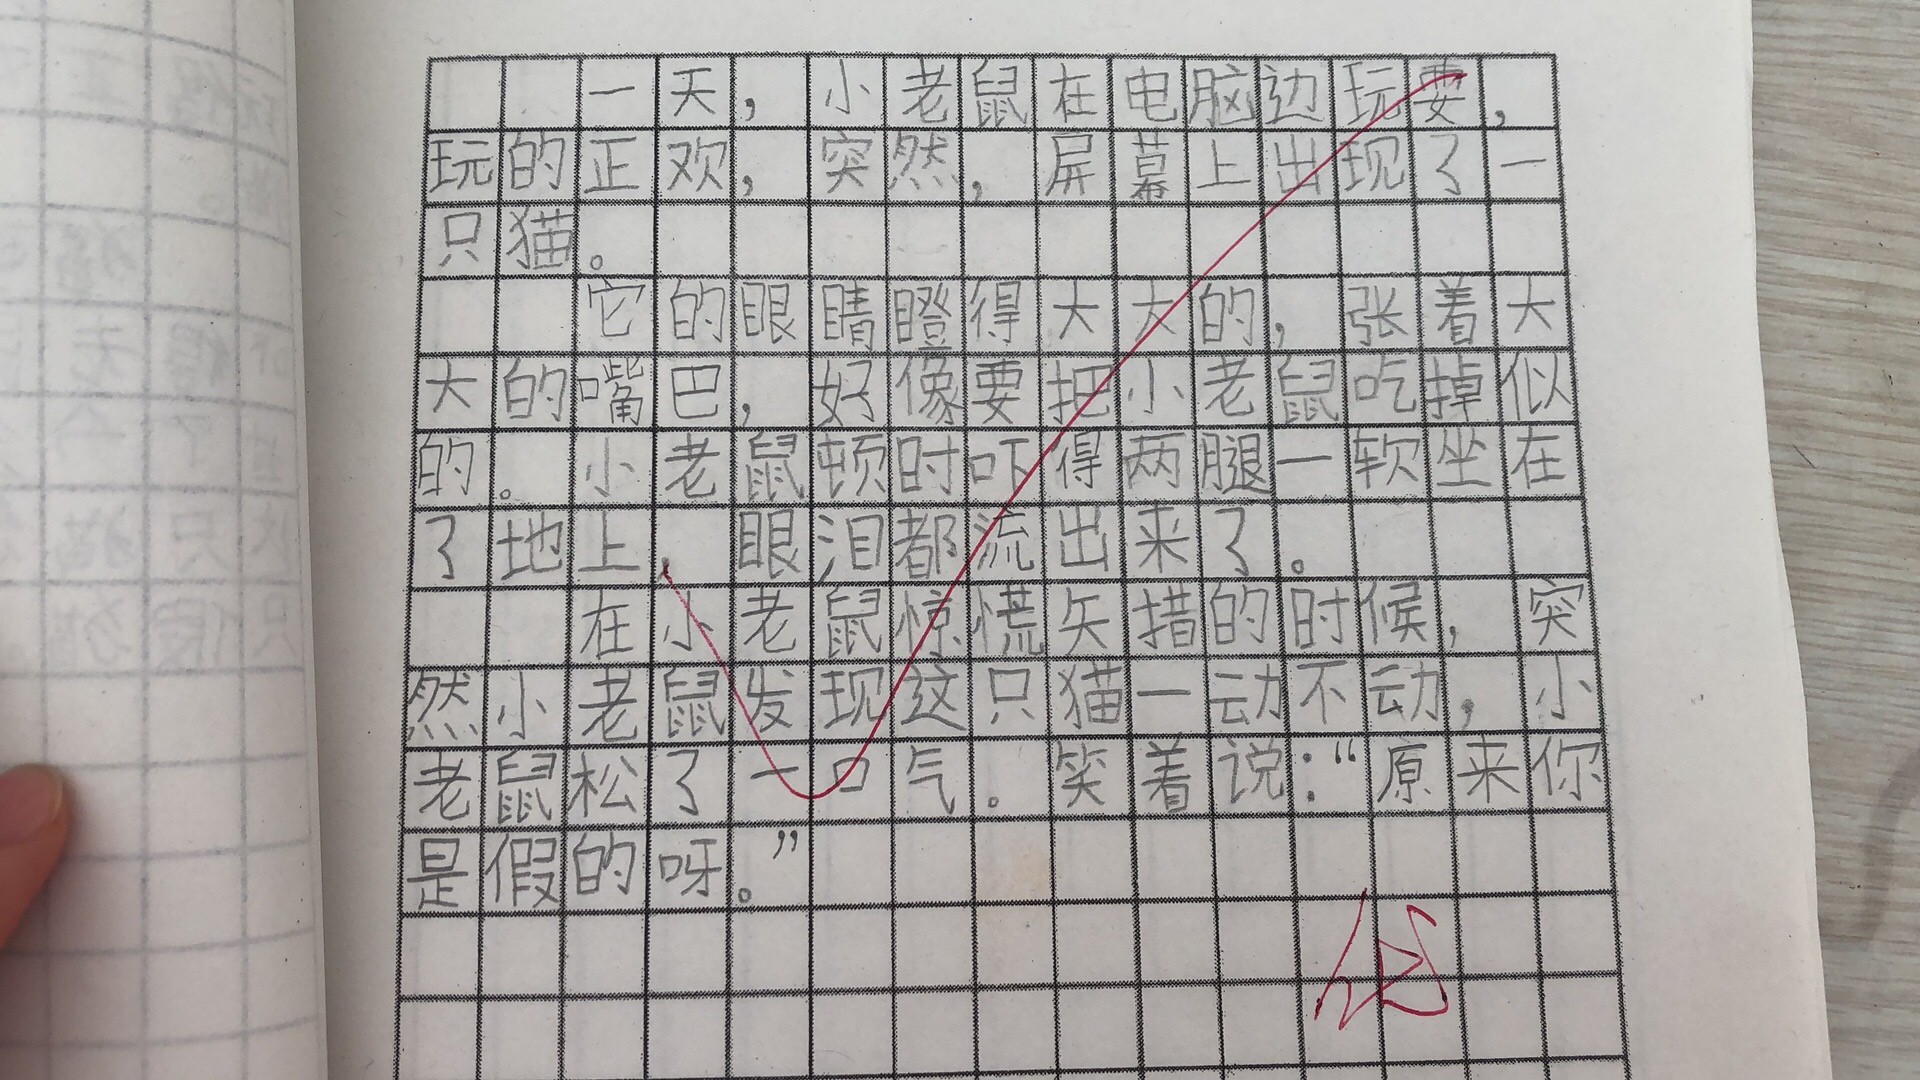 一天，小老鼠在电脑边玩耍，
玩的正欢，突然，屏幕上出现了一
只猫。
它的眼睛瞪得大大的，张着大
大的嘴巴，好像要把小老鼠吃掉似
的。小老鼠顿时吓得两腿一软坐在
了地上，眼泪都流出来了。
在小老鼠惊慌矢措的时候，突
然小老鼠发现这只猫一动不动，小
老鼠松了一口气。笑着说：“原来你
是假的呀。”